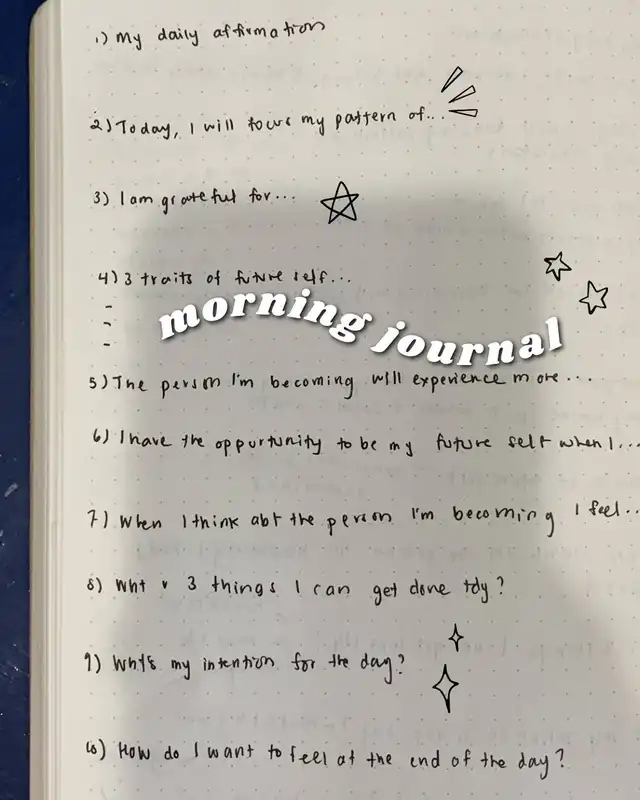 1) My daily affirmation
2) Today, I will focus my pattern of...
3) I am grateful for...
4) 3 traits of future self...
-
-
-
morning journal
5) The person I'm becoming will experience more...
6) I have the oppurtunity to be my future self when I...
7) When I think abt the person I'm becoming I feel..
8) Wht r 3 things I can get done tdy?
9) Wht's my intention for the day?
10) How do I want to feel at the end of the day?